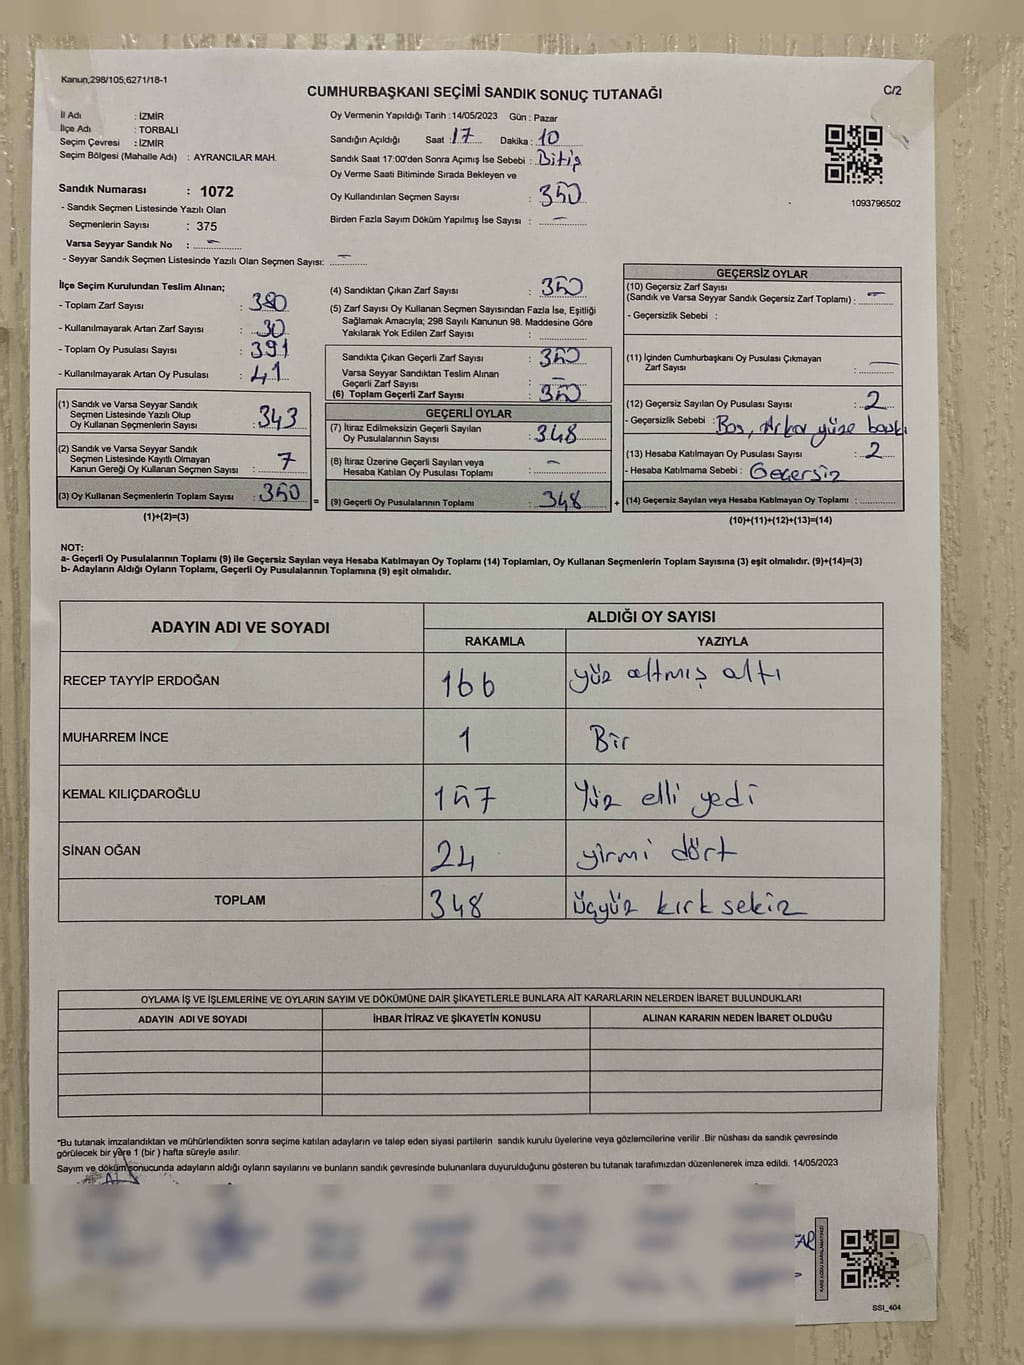 Kanun;298/105;6271/18-1
CUMHURBAŞKANI SEÇİMİ SANDIK SONUÇ TUTANAĞI
C/2
İl Adı : İZMİR
İlçe Adı : TORBALI
Seçim Çevresi : İZMİR
Seçim Bölgesi (Mahalle Adı) : AYRANCILAR MAH.
Sandık Numarası : 1072
- Sandık Seçmen Listesinde Yazılı Olan
Seçmenlerin Sayısı : 375
Varsa Seyyar Sandık No : –
- Seyyar Sandık Seçmen Listesinde Yazılı Olan Seçmen Sayısı: –
Oy Vermenin Yapıldığı Tarih : 14/05/2023 Gün : Pazar
Sandığın Açıldığı Saat : 17 Dakika : 10
Sandık Saat 17:00'den Sonra Açımış İse Sebebi : Bitiş
Oy Verme Saati Bitiminde Sırada Bekleyen ve
Oy Kullandırılan Seçmen Sayısı : 350
Birden Fazla Sayım Döküm Yapılmış İse Sayısı : –
1093796502
İlçe Seçim Kurulundan Teslim Alınan;
- Toplam Zarf Sayısı : 380
- Kullanılmayarak Artan Zarf Sayısı : 30
- Toplam Oy Pusulası Sayısı : 391
- Kullanılmayarak Artan Oy Pusulası : 41
(1) Sandık ve Varsa Seyyar Sandık
Seçmen Listesinde Yazılı Olup
Oy Kullanan Seçmenlerin Sayısı : 343
(2) Sandık ve Varsa Seyyar Sandık
Seçmen Listesinde Kayıtlı Olmayan
Kanun Gereği Oy Kullanan Seçmen Sayısı : 7
(3) Oy Kullanan Seçmenlerin Toplam Sayısı : 350 =
(1)+(2)=(3)
(4) Sandıktan Çıkan Zarf Sayısı : 350
(5) Zarf Sayısı Oy Kullanan Seçmen Sayısından Fazla İse, Eşitliği
Sağlamak Amacıyla; 298 Sayılı Kanunun 98. Maddesine Göre
Yakılarak Yok Edilen Zarf Sayısı :
Sandıkta Çıkan Geçerli Zarf Sayısı : 350
Varsa Seyyar Sandıktan Teslim Alınan
Geçerli Zarf Sayısı : –
(6) Toplam Geçerli Zarf Sayısı : 350
GEÇERLİ OYLAR
(7) İtiraz Edilmeksizin Geçerli Sayılan
Oy Pusulalarının Sayısı : 348
(8) İtiraz Üzerine Geçerli Sayılan veya
Hesaba Katılan Oy Pusulası Toplamı : –
(9) Geçerli Oy Pusulalarının Toplamı : 348 +
GEÇERSİZ OYLAR
(10) Geçersiz Zarf Sayısı
(Sandık ve Varsa Seyyar Sandık Geçersiz Zarf Toplamı) : –
- Geçersizlik Sebebi :
(11) İçinden Cumhurbaşkanı Oy Pusulası Çıkmayan
Zarf Sayısı : –
(12) Geçersiz Sayılan Oy Pusulası Sayısı : 2
- Geçersizlik Sebebi : Boş, Arka yüze baskı
(13) Hesaba Katılmayan Oy Pusulası Sayısı : 2
- Hesaba Katılmama Sebebi : Geçersiz
(14) Geçersiz Sayılan veya Hesaba Katılmayan Oy Toplamı :
(10)+(11)+(12)+(13)=(14)
NOT:
a- Geçerli Oy Pusulalarının Toplamı (9) ile Geçersiz Sayılan veya Hesaba Katılmayan Oy Toplamı (14) Toplamları, Oy Kullanan Seçmenlerin Toplam Sayısına (3) eşit olmalıdır. (9)+(14)=(3)
b- Adayların Aldığı Oyların Toplamı, Geçerli Oy Pusulalarının Toplamına (9) eşit olmalıdır.
ADAYIN ADI VE SOYADI
ALDIĞI OY SAYISI
RAKAMLA YAZIYLA
RECEP TAYYİP ERDOĞAN 166 yüz altmış altı
MUHARREM İNCE 1 Bir
KEMAL KILIÇDAROĞLU 157 Yüz elli yedi
SİNAN OĞAN 24 yirmi dört
TOPLAM 348 üçyüz kırk sekiz
OYLAMA İŞ VE İŞLEMLERİNE VE OYLARIN SAYIM VE DÖKÜMÜNE DAİR ŞİKAYETLERLE BUNLARA AİT KARARLARIN NELERDEN İBARET BULUNDUKLARI
ADAYIN ADI VE SOYADI İHBAR İTİRAZ VE ŞİKAYETİN KONUSU ALINAN KARARIN NEDEN İBARET OLDUĞU
*Bu tutanak imzalandıktan ve mühürlendikten sonra seçime katılan adayların ve talep eden siyasi partilerin sandık kurulu üyelerine veya gözlemcilerine verilir .Bir nüshası da sandık çevresinde
görülecek bir yere 1 (bir ) hafta süreyle asılır.
Sayım ve döküm sonucunda adayların aldığı oyların sayılarını ve bunların sandık çevresinde bulunanlara duyurulduğunu gösteren bu tutanak tarafımızdan düzenlenerek imza edildi. 14/05/2023
SSI_404